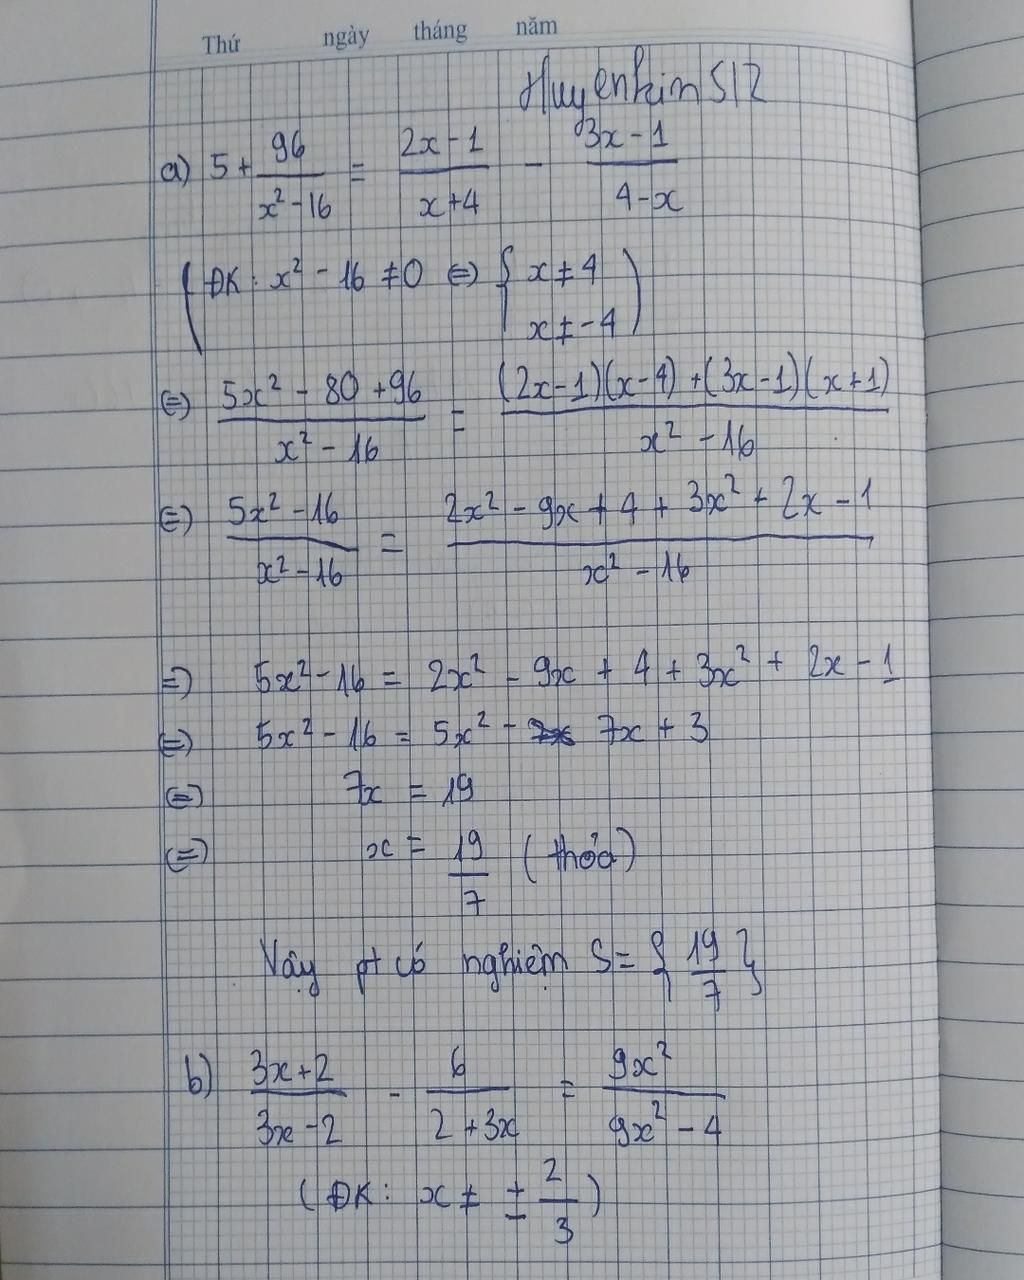 Thứ ngày tháng năm
Huyenkim512
a) 5 + 96/(x² - 16) = (2x - 1)/(x + 4) - (3x - 1)/(4 - x)
(ĐK: x² - 16 ≠ 0 ⇔ { x ≠ 4
x ≠ -4 )
⇔ (5x² - 80 + 96)/(x² - 16) = ((2x-1)(x-4) + (3x-1)(x+1))/(x² - 16)
⇔ (5x² - 16)/(x² - 16) = (2x² - 9x + 4 + 3x² + 2x - 1)/(x² - 16)
⇒ 5x² - 16 = 2x² - 9x + 4 + 3x² + 2x - 1
⇔ 5x² - 16 = 5x² - 7x + 3
⇔ 7x = 19
⇔ x = 19/7 (thỏa)
Vậy pt có nghiệm S = { 19/7 }
b) (3x + 2)/(3x - 2) - 6/(2 + 3x) = 9x²/(9x² - 4)
(ĐK: x ≠ ± 2/3)